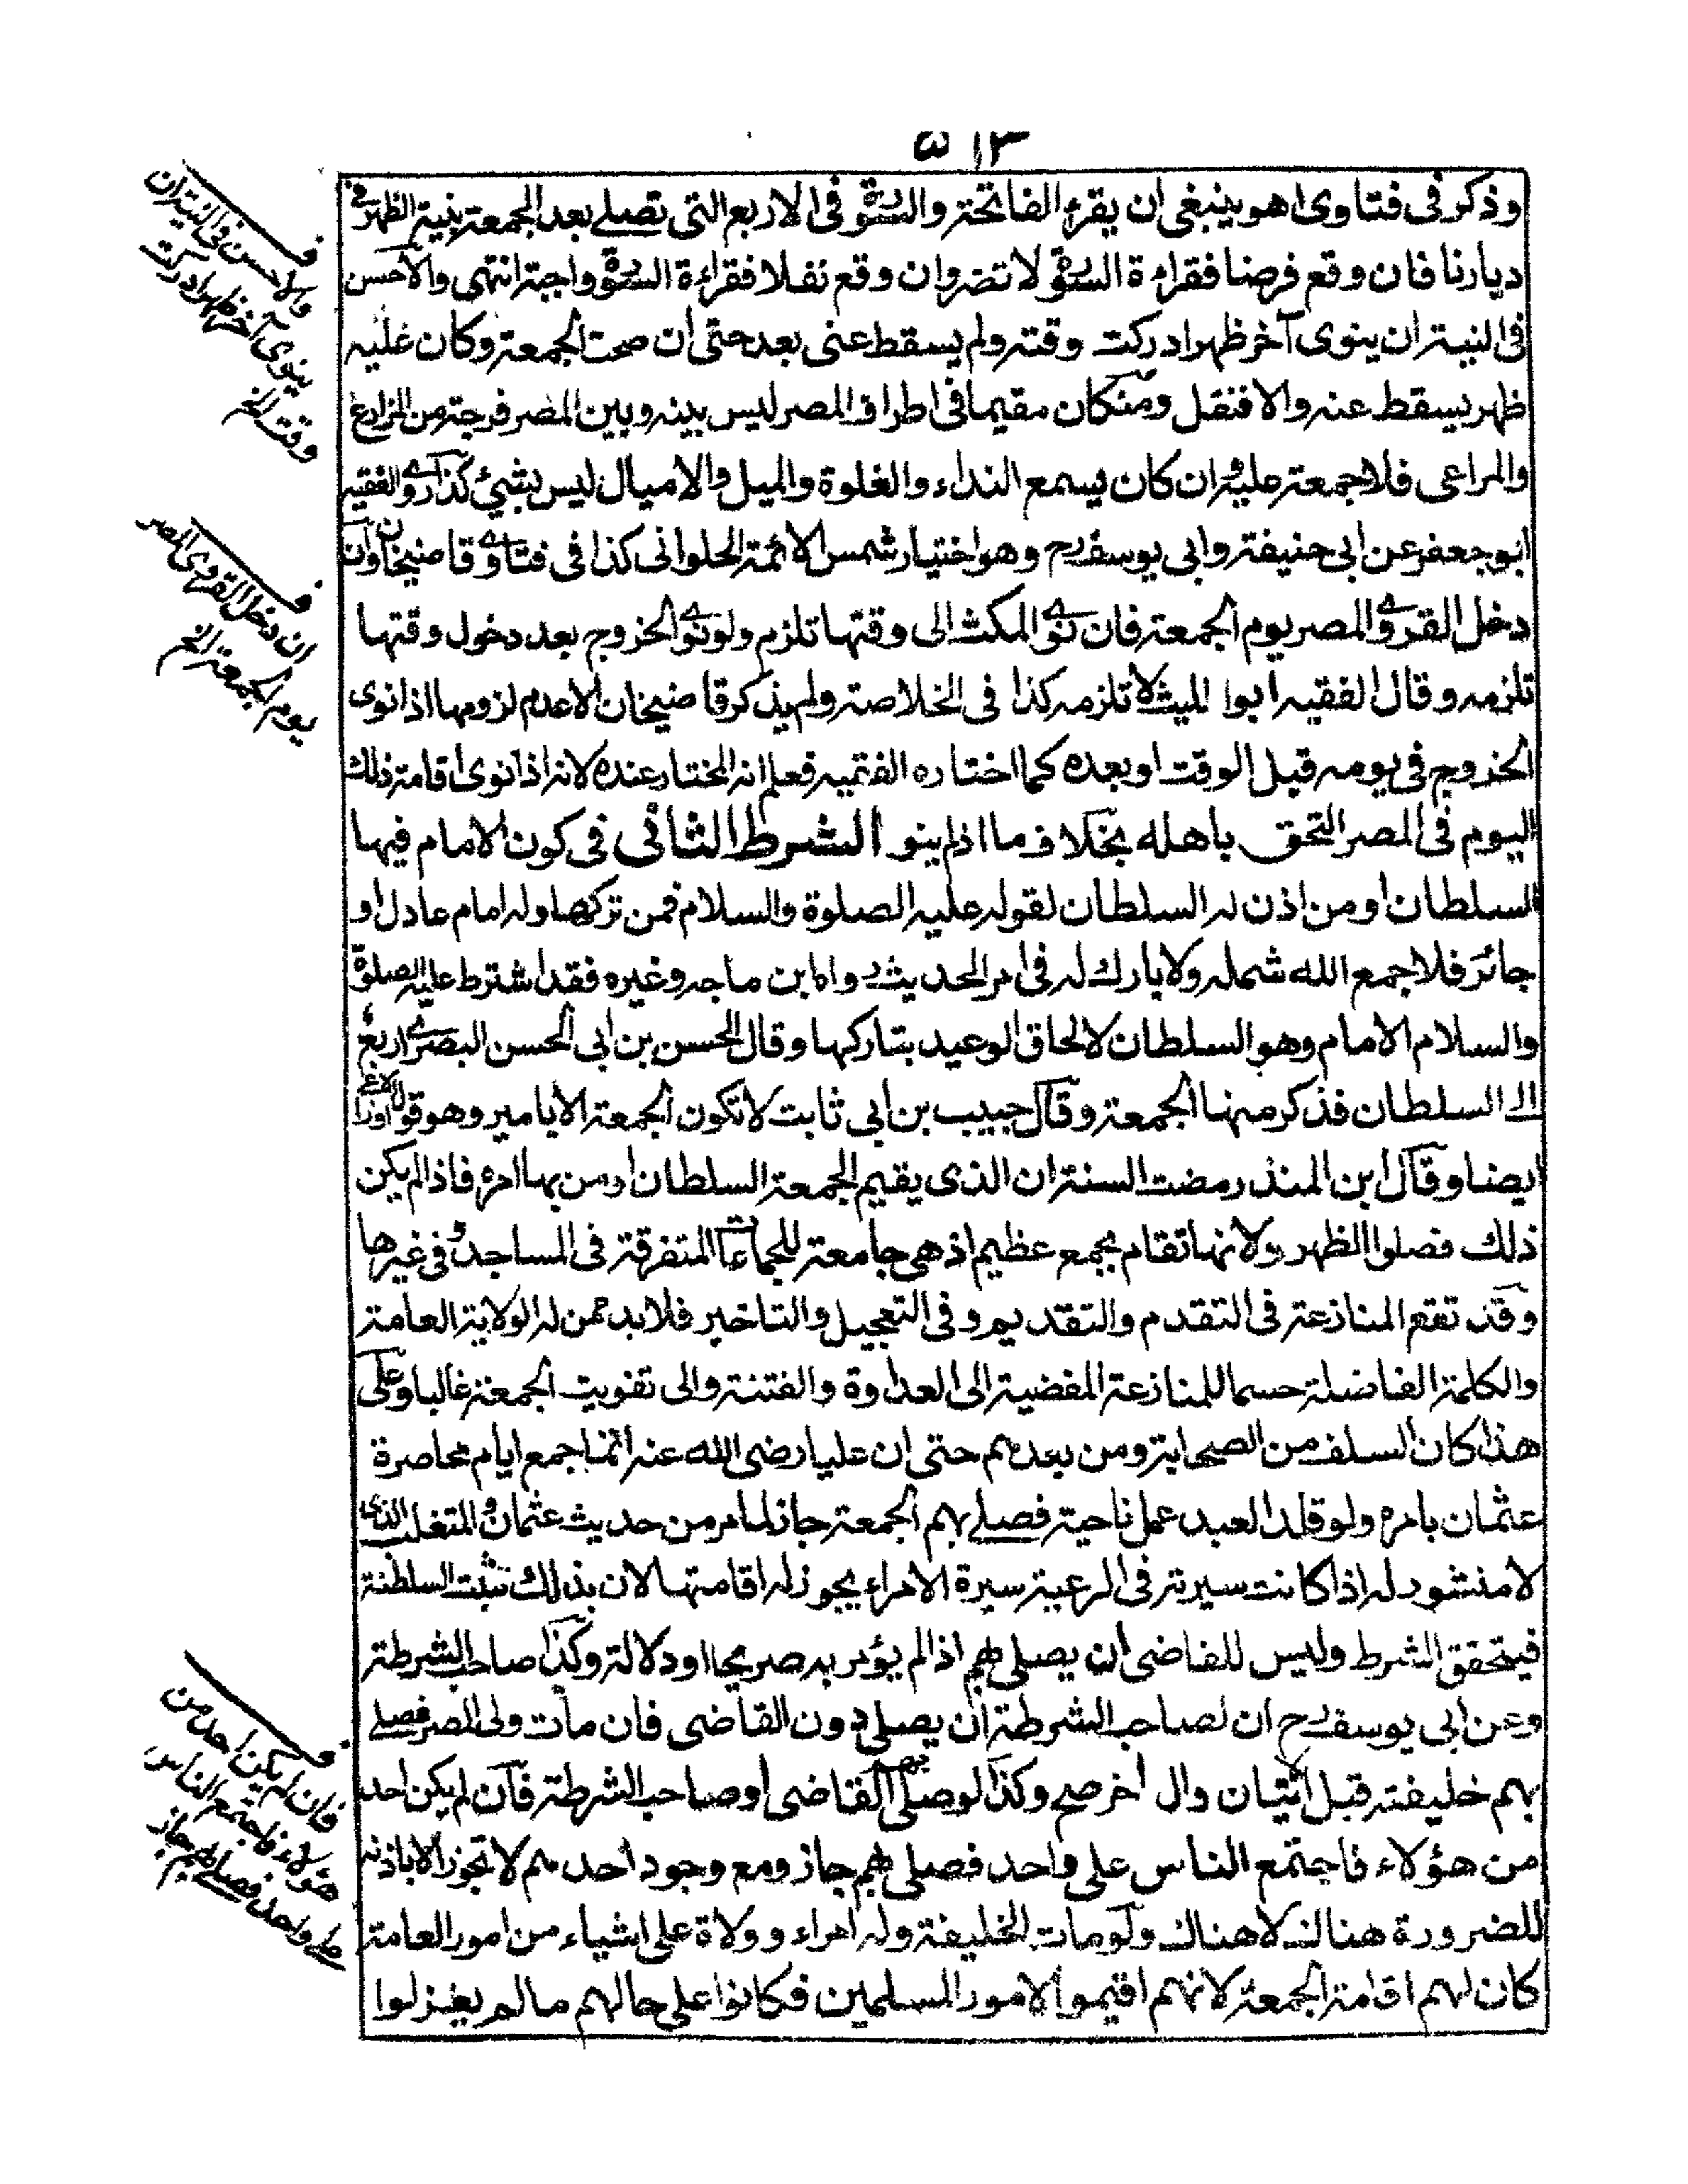 ٥١٣
وذكر فى فتاوى اهو ينبغى ان يقرء الفاتحة والسورة فى الاربع التى تصلے بعد الجمعة بنية الظهر فى
ديارنا فان وقع فرضا فقراءة السورة لا تضر وان وقع نفلا فقراءة السورة واجبة انتهى والاحسن
فى النية ان ينوى آخر ظهر ادركت وقته ولم يسقط عنى بعد حتى ان صحت الجمعة وكان عليه
ظهر يسقط عنه والا فنفل ومن كان مقيما فى اطراف المصر ليس بينه وبين المصر فرجة من المزارع
والمراعى فلا جمعة عليه وان كان يسمع النداء والغلوة والميل والاميال ليس بشيئ كذا روى الفقيه
ابو جعفر عن ابى حنيفة وابى يوسف رح وهو اختيار شمس الائمة الحلوانى كذا فى فتاوى قاضيخان وان
دخل القروى المصر يوم الجمعة فان نوى المكث الى وقتها تلزم ولو نوى الخروج بعد دخول وقتها
تلزمه وقال الفقيه ابوا الليث لا تلزمه كذا فى الخلاصة ولم يذكر قاضيخان الا عدم لزومها اذا نوى
الخروج فى يومه قبل الوقت او بعده كما اختاره الفقيه فعلم انه المختار عنده لانه اذا نوى اقامة ذلك
اليوم فى المصر التحق باهله بخلاف ما اذا لم ينو الشرط الثانى فى كون الامام فيها
السلطان او من اذن له السلطان لقوله عليه الصلوة والسلام فمن تركها وله امام عادل او
جائر فلا جمع الله شمله ولا بارك له فى امر الحديث رواه ابن ماجه وغيره فقد اشترط عليه الصلوة
والسلام الامام وهو السلطان لالحاق الوعيد بتاركها وقال الحسن بن ابى الحسن البصرى اربع
الے السلطان فذكر منها الجمعة وقال حبيب بن ابى ثابت لا تكون الجمعة الا بامير وهو قول الاوزاعى
ايضا وقال ابن المنذر مضت السنة ان الذى يقيم الجمعة السلطان او من بها امره فاذا لم يكن
ذلك فصلوا الظهر ولانها تقام بجمع عظيم اذ هى جامعة للجماعات المتفرقة فى المساجد وفى غيرها
وقد تقع المنازعة فى التقدم والتقديم وفى التعجيل والتاخير فلا بد ممن له الولاية العامة
والكلمة الفاضلة حسما للمنازعة المفضية الى العداوة والفتنة والى تفويت الجمعة غالبا وعلى
هذا كان السلف من الصحابة ومن بعدهم حتى ان عليا رضى الله عنه انما جمع ايام محاصرة
عثمان بامره ولو قلد العبد عمل ناحية فصلے بهم الجمعة جاز لما مر من حديث عثمان والمتغلب الذى
لا منشور له اذا كانت سيرته فى الرعية سيرة الامراء يجوز له اقامتها لان بذلك تثبت السلطنة
فيتحقق الشرط وليس للقاضى ان يصلى بهم اذا لم يؤمر به صريحا او دلالة وكذا صاحب الشرطة
وعن ابى يوسف رح ان لصاحب الشرطة ان يصلى دون القاضى فان مات ولى المصر فصلے
بهم خليفته قبل اتيان وال آخر صح وكذا لو صلى بهم القاضى او صاحب الشرطة فان لم يكن احد
من هؤلاء فاجتمع الناس على واحد فصلى بهم جاز ومع وجود احد منهم لا تجوز الا باذنه
للضرورة هنالك لا هناك ولو مات الخليفة وله امراء وولاة على اشياء من امور العامة
كان لهم اقامة الجمعة لانهم اقيموا لامور المسلمين فكانوا على حالهم ما لم يعزلوا
والاحسن فى النية ان
ينوى آخر ظهر ادركت
وقته الخ
ان دخل القروى المصر
يوم الجمعة الخ
فان لم يكن احد من
هؤلاء فاجتمع الناس
على واحد فصلے بهم جاز